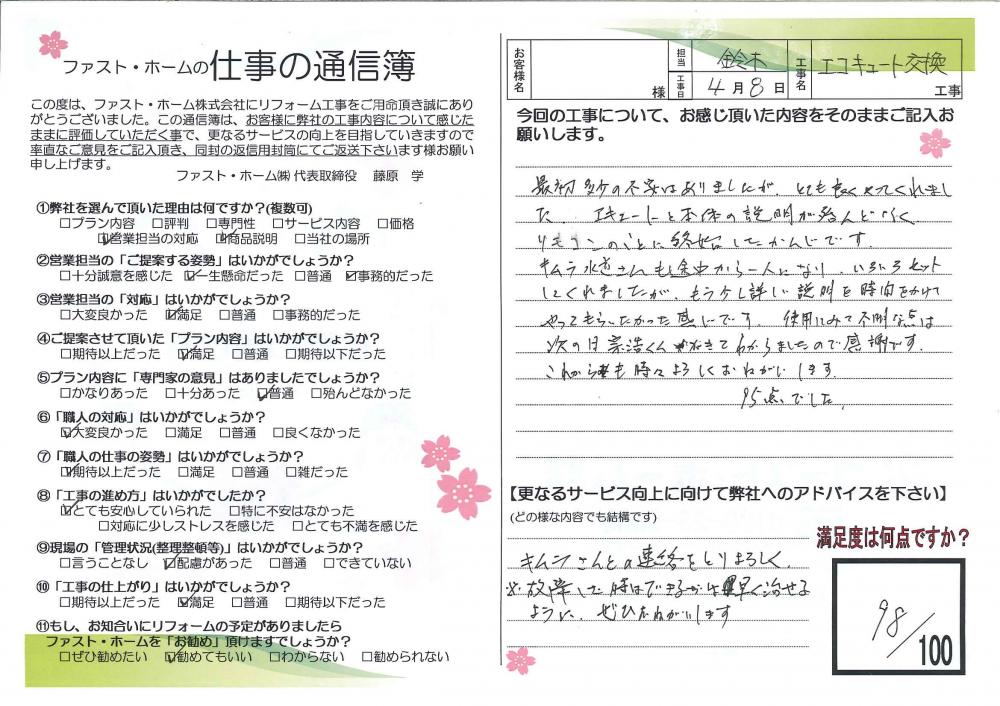 ファスト・ホームの仕事の通信簿
この度は、ファスト・ホーム株式会社にリフォーム工事をご用命頂き誠にあり
がとうございました。この通信簿は、お客様に弊社の工事内容について感じた
ままに評価していただく事で、更なるサービスの向上を目指していきますので
率直なご意見をご記入頂き、同封の返信用封筒にてご返送下さいます様お願い
申し上げます。
ファスト・ホーム㈱ 代表取締役 藤原 学
①弊社を選んで頂いた理由は何ですか？(複数可)
□プラン内容 □評判 □専門性 □サービス内容 □価格
☑営業担当の対応 ☑商品説明 □当社の場所
②営業担当の「ご提案する姿勢」はいかがでしょうか？
□十分誠意を感じた ☑一生懸命だった □普通 ☑事務的だった
③営業担当の「対応」はいかがでしょうか？
□大変良かった ☑満足 □普通 □事務的だった
④ご提案させて頂いた「プラン内容」はいかがでしょうか？
□期待以上だった ☑満足 □普通 □期待以下だった
⑤プラン内容に「専門家の意見」はありましたでしょうか？
□かなりあった □十分あった ☑普通 □殆んどなかった
⑥「職人の対応」はいかがでしょうか？
☑大変良かった □満足 □普通 □良くなかった
⑦「職人の仕事の姿勢」はいかがでしょうか？
☑期待以上だった □満足 □普通 □雑だった
⑧「工事の進め方」はいかがでしたか？
☑とても安心していられた □特に不安はなかった
□対応に少しストレスを感じた □とても不満を感じた
⑨現場の「管理状況(整理整頓等)」はいかがでしょうか？
□言うことなし ☑配慮があった □普通 □できていない
⑩「工事の仕上がり」はいかがでしょうか？
□期待以上だった ☑満足 □普通 □期待以下だった
⑪もし、お知合いにリフォームの予定がありましたら
ファスト・ホームを「お勧め」頂けますでしょうか？
□ぜひ勧めたい ☑勧めてもいい □わからない □勧められない
お客様名 様 担当 鈴木 工事日 4月8日 工事名 エコキュート交換 工事
今回の工事について、お感じ頂いた内容をそのままご記入お
願いします。
最初多少の不安はありましたが、とても良くやってくれまし
た。エキュートと本体の説明が殆んどなく
リモコンのことに終始したかんじです。
キムラ水道さんも途中から一人になり、いろいろセット
してくれましたが、もう少し詳しい説明を時間をかけて
やってもらいたかった感じです。使用してみて不明な点は
次の日 くんがきてわかりましたので感謝です。
これからも時々よろしくおねがいします。
95点でした。
【更なるサービス向上に向けて弊社へのアドバイスを下さい】
(どの様な内容でも結構です)
キムラさんとの連絡をとりよろしく、
※故障した時はできるかぎり早く治せる
ように、ぜひおねがいします
満足度は何点ですか？
98/100